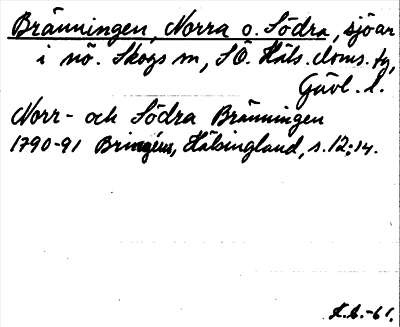 Bränningen, Norra o. Södra, sjöar
i nö. Skogs sn, SÖ. Häls. doms. tg,
Gävl. l.
Norr- och Södra Bränningen
1790-91 Bringéus, Hälsingland, s. 12; 14.
K.A.-61.